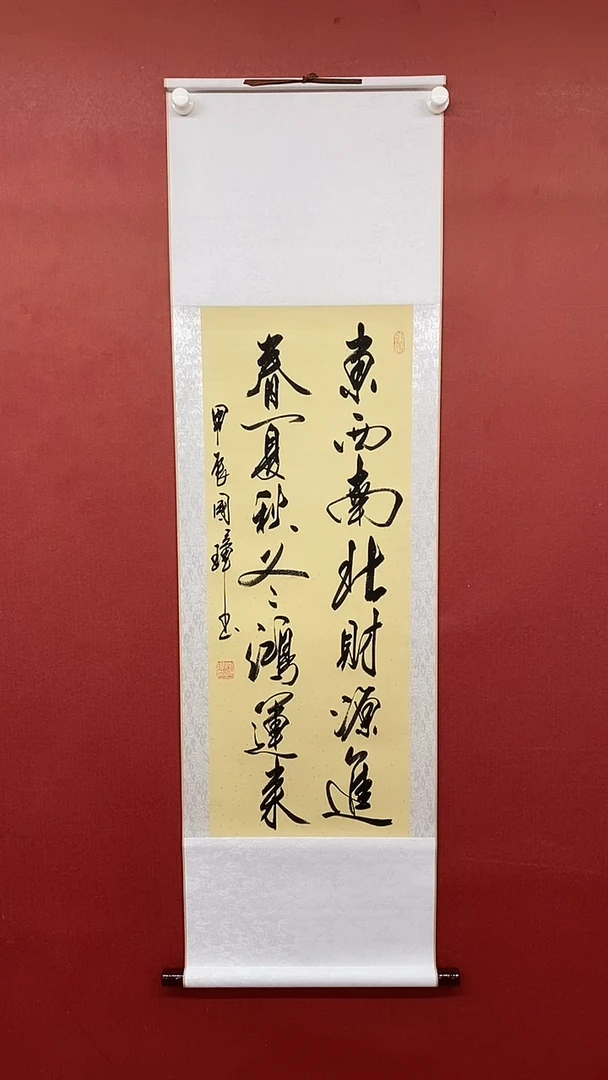 東西南北財源進
春夏秋冬鴻運来
甲辰國璋书